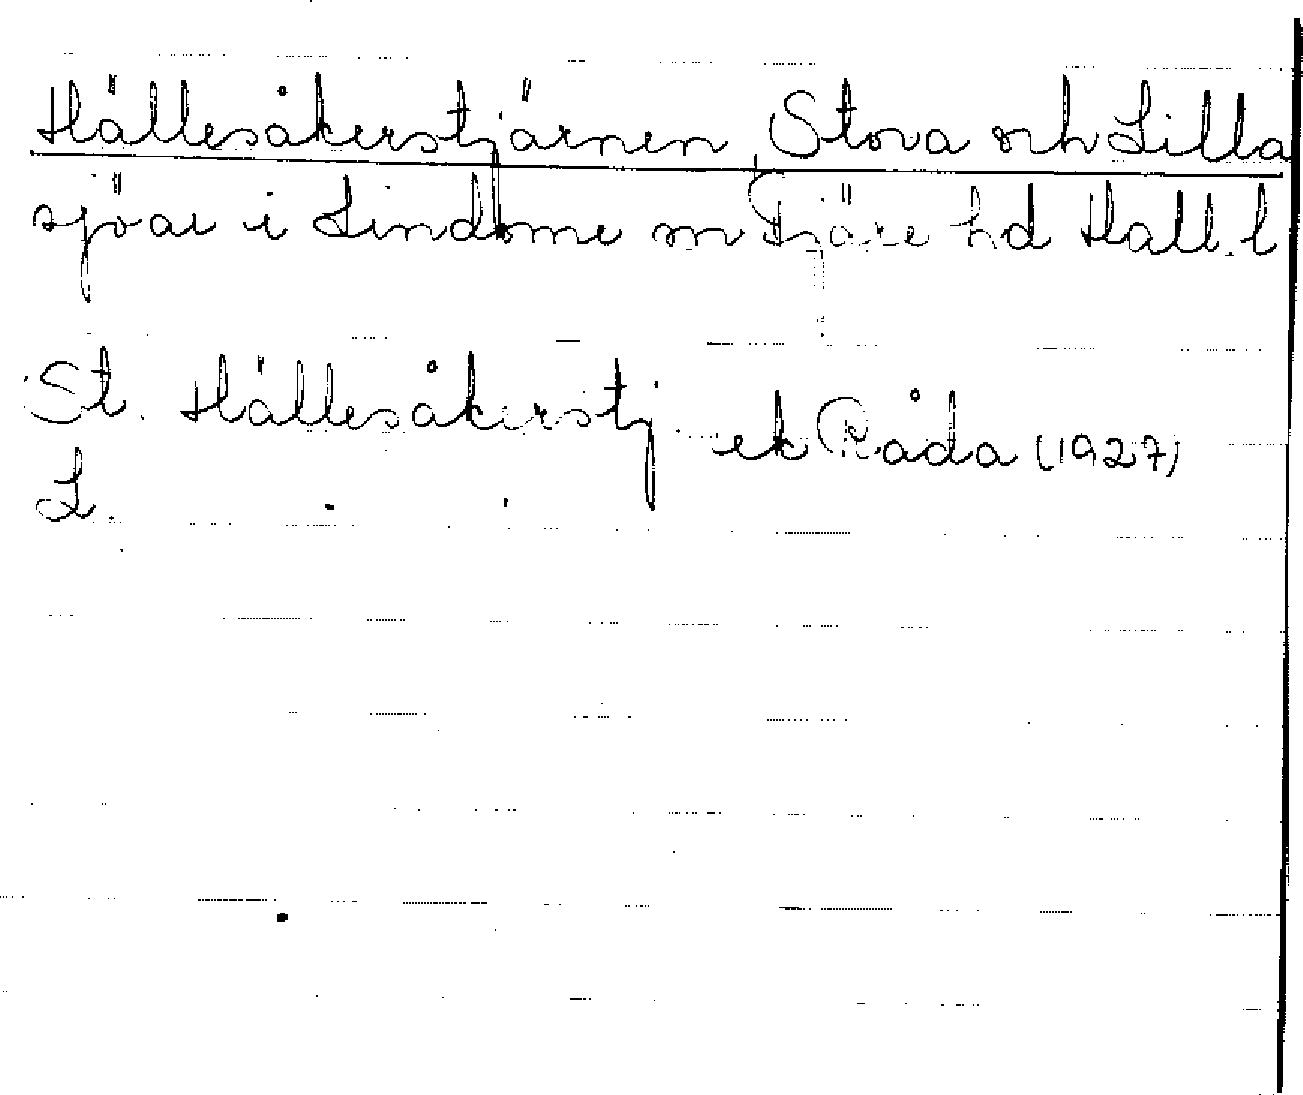 Hällesåkerstjärnen, Stora och Lilla
sjöar i Lindome sn Fjäre hd Hall. l
St. Hällesåkerstj ek Råda (1927)
L. " "